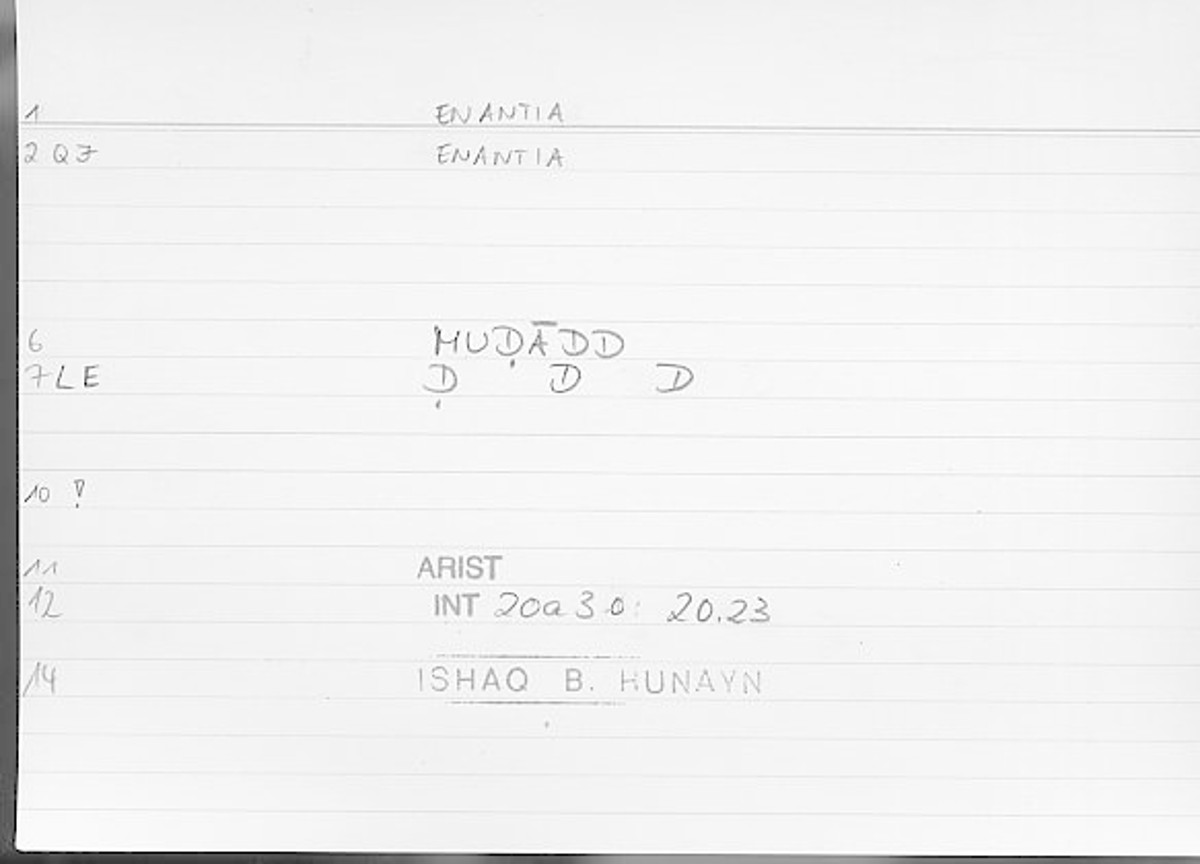 1 ENANTIA
2 QZ ENANTIA
6 MUḌĀDD
7 LE Ḍ D D
10 !
11 ARIST
12 INT 20a30: 20.23
14 ISHAQ B. HUNAYN